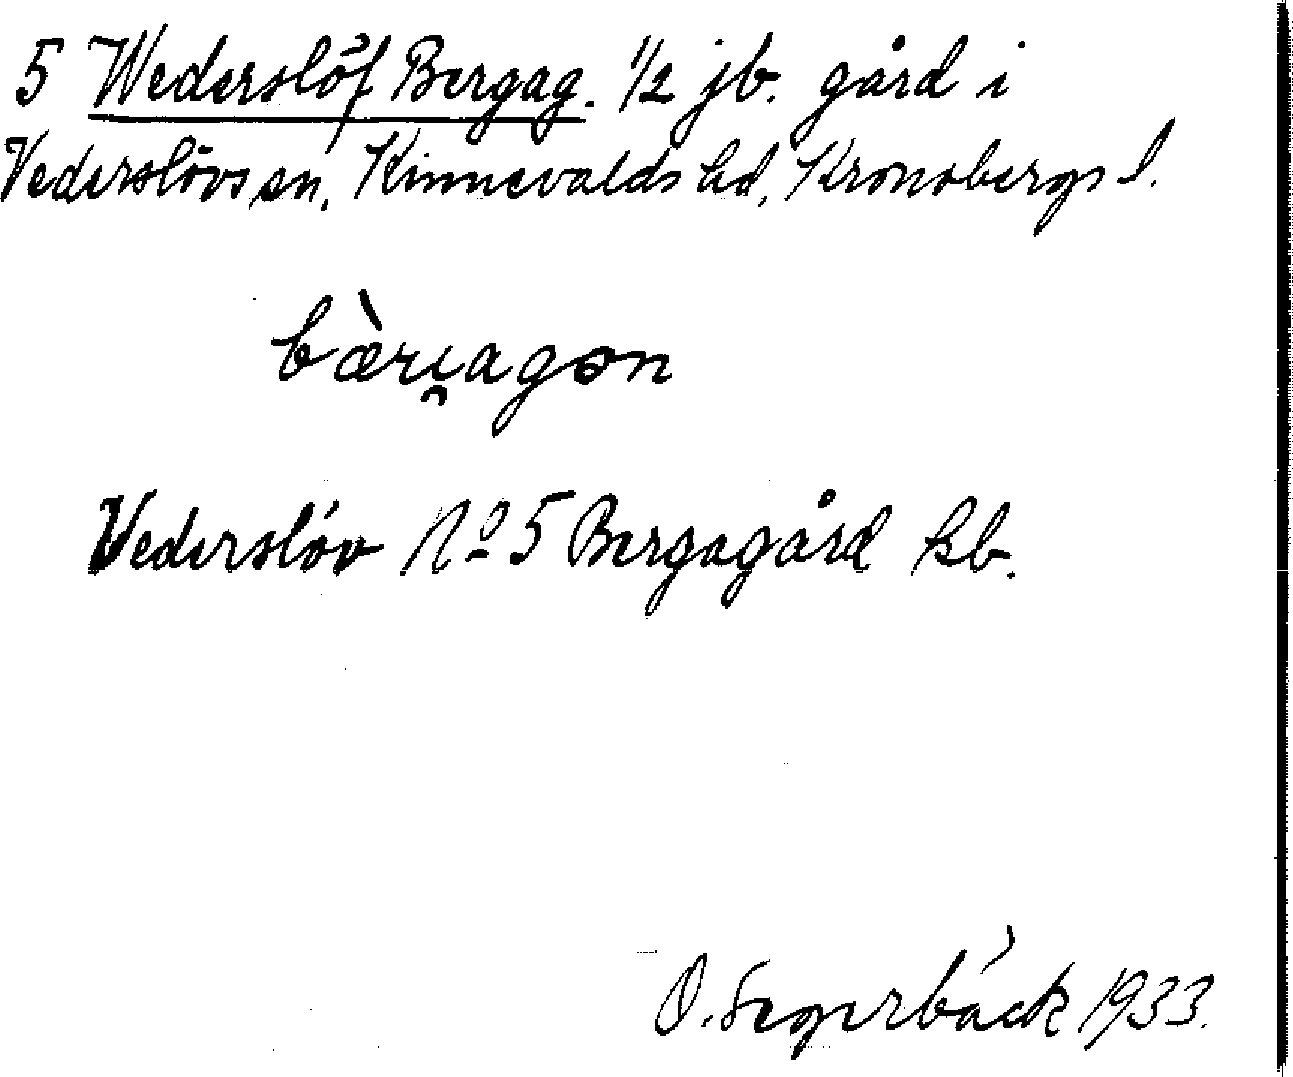 5 Wederslöf Bergag. 1/2 jb. gård i
Vederslövs sn, Kinnevalds hd, Kronobergs l.
bæ̀ri̯agən
Vederslöv No 5 Bergagård kb.
O. Segerbäck 1933.